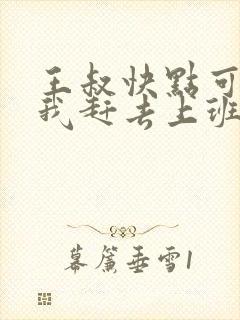 王叔快點可
我赶去上班
幕簾垂雪1